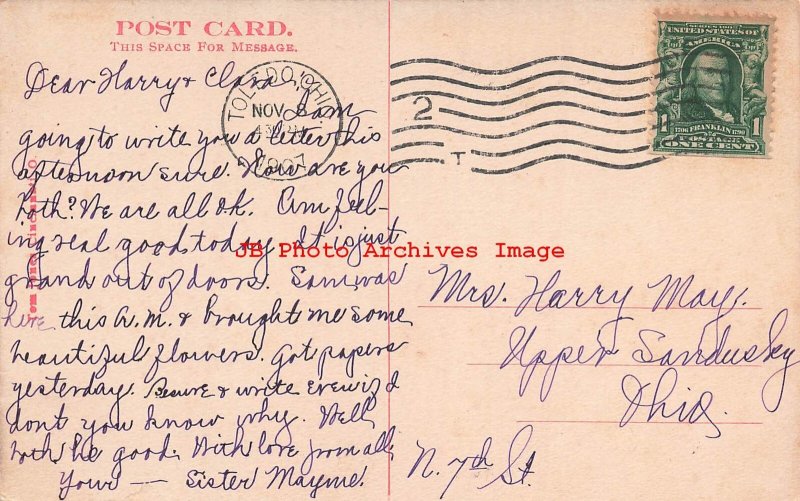 POST CARD.
THIS SPACE FOR MESSAGE.
Dear Harry & Clara, I am
going to write you a letter this
afternoon sure. How are you
both? We are all O.K. Am feel-
ing real good today. It is just
grand out of doors. Sam was
here this A.M. & brought me some
beautiful flowers. Got papers
yesterday. Besure & write
dont you know why. Well
both be good. With love from all.
Your — Sister Mayme.
TOLEDO, OHIO
NOV 8
1907
2
T
SERIES 1902
UNITED STATES OF
AMERICA
1 1706 FRANKLIN 1790 1
POSTAGE
ONE CENT
JB Photo Archives Image
Mrs. Harry May.
Upper Sandusky
Ohio.
N. 7th St.